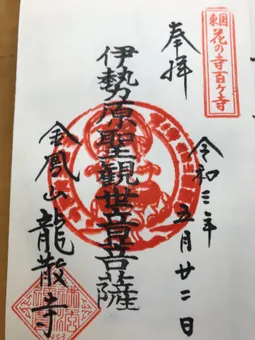 関東
花の寺百ヶ寺
奉拝
令和三年
五月廿二日
伊勢原聖観世音菩薩
金鳳山
龍散寺